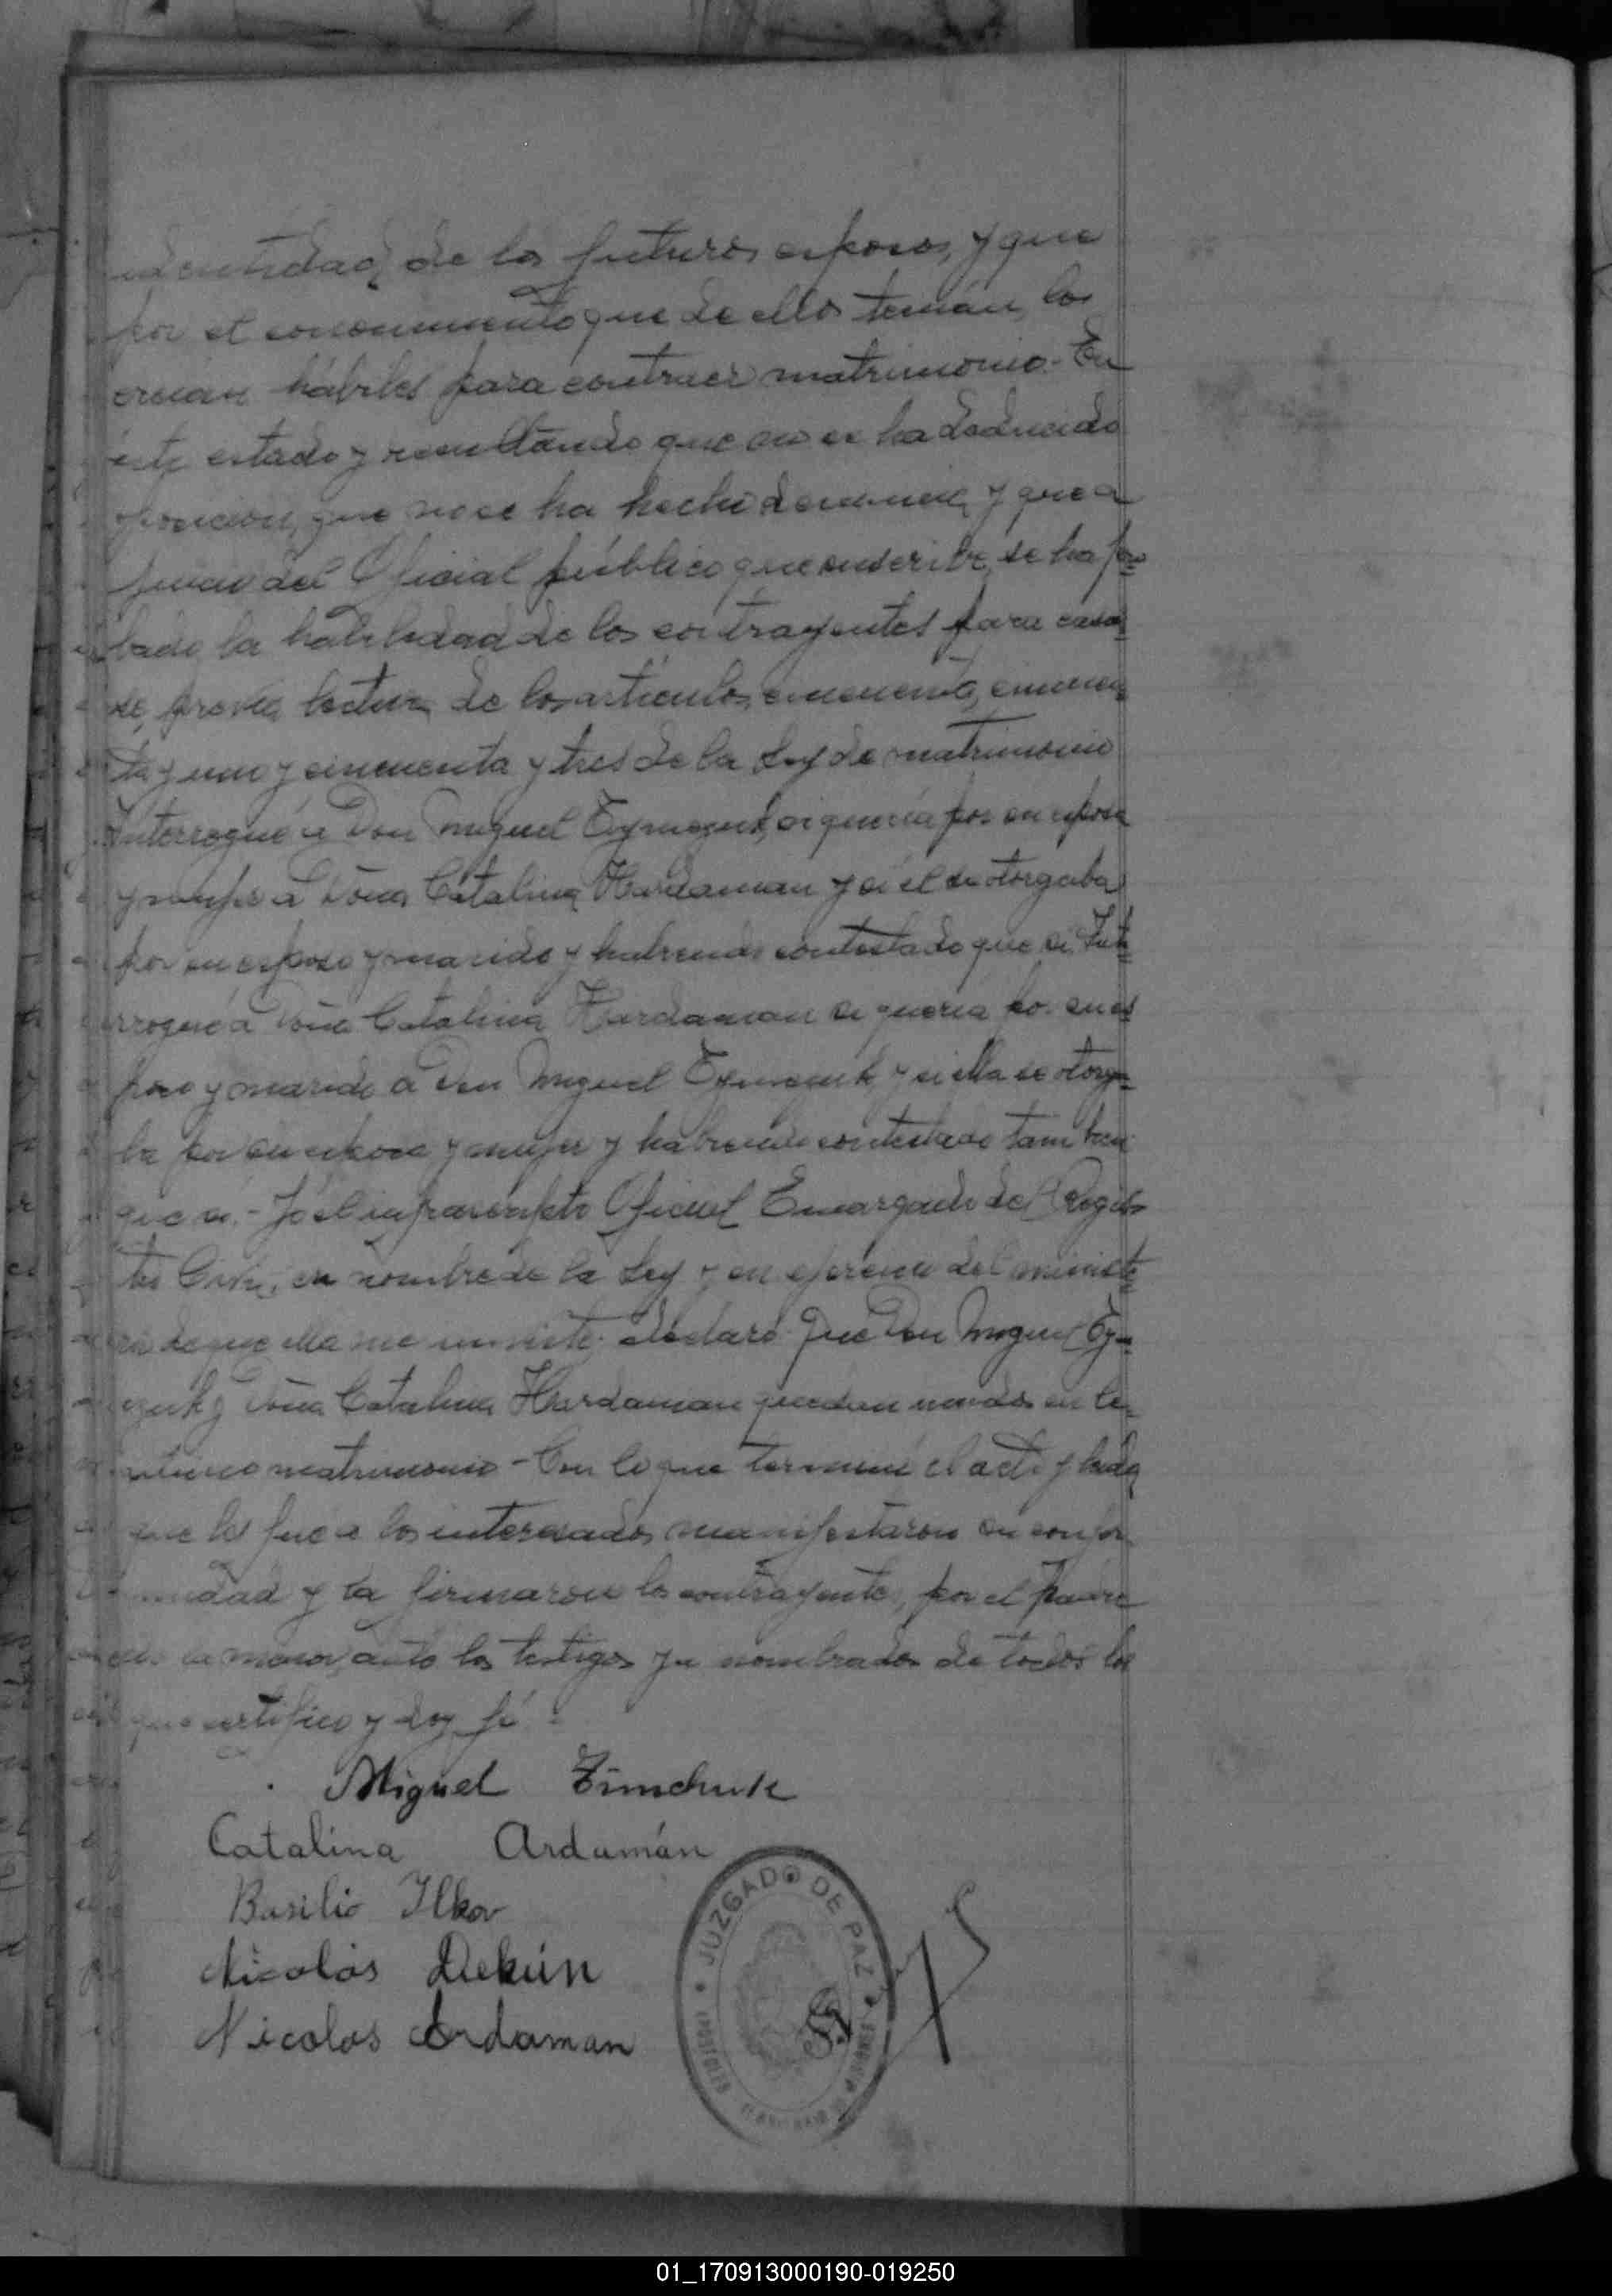 identidad de los futuros esposos, y que
por el conocimiento que de ellos tenían, los
creían hábiles para contraer matrimonio.- En
éste estado y resultando que no se ha deducido
oposición, que no se ha hecho denuncia y que a
juicio del Oficial público que suscribe, se ha pro=
bado la habilidad de los contrayentes para casar=
se, previa lectura de los artículos cincuenta, cincuen=
ta y uno y cincuenta y tres de la Ley de matrimonio
Interrogué a Don Miguel si quería por su esposa
y mujer a Doña Catalina Hardaman y si él se otorgaba
por su esposo y marido y habiendo contestado que si. Inte=
rrogué a Doña Catalina Hardaman si quería por su es=
poso y marido a Don Miguel y si ella se otorga=
ba por su esposa y mujer y habiendo contestado tambien
que si.- Yo el infrascripto Oficial Encargado del Regis=
tro Civil, en nombre de la Ley y en ejercicio del ministe=
rio de que ella me inviste, declaro: Que Don Miguel
y Doña Catalina Hardaman quedan unidos en le=
gítimo matrimonio - Con lo que terminó el acto y leida
que les fué a los interesados manifestaron su confor=
midad y la firmaron los contrayentes, por el padre
de la menor, ante los testigos ya nombrados de todos los
que certifico y doy fé.-
Miguel Zimchuk
Catalina Ardamán
Basilio Ilkov
Nicolás Dekún
Nicolas Ardaman
JUZGADO DE PAZ
APOSTOLES
MISIONES
01_170913000190-019250